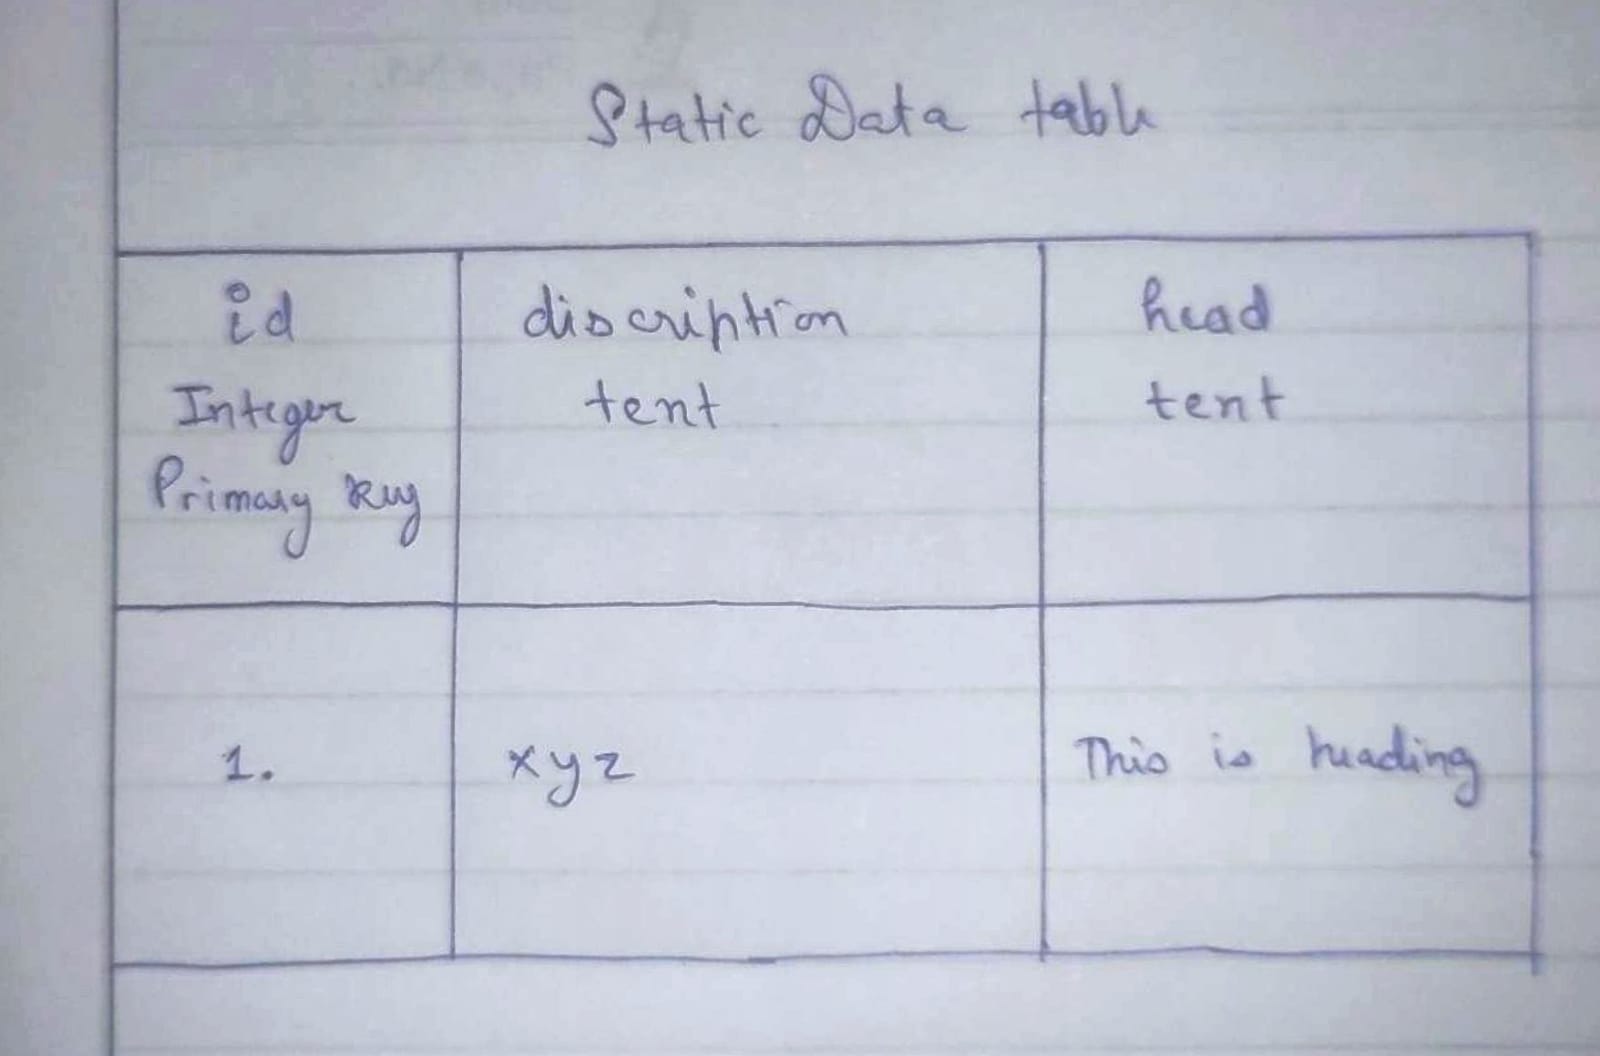 Static Data table
id discription head
Integer tent tent
Primary key
1. xyz This is heading